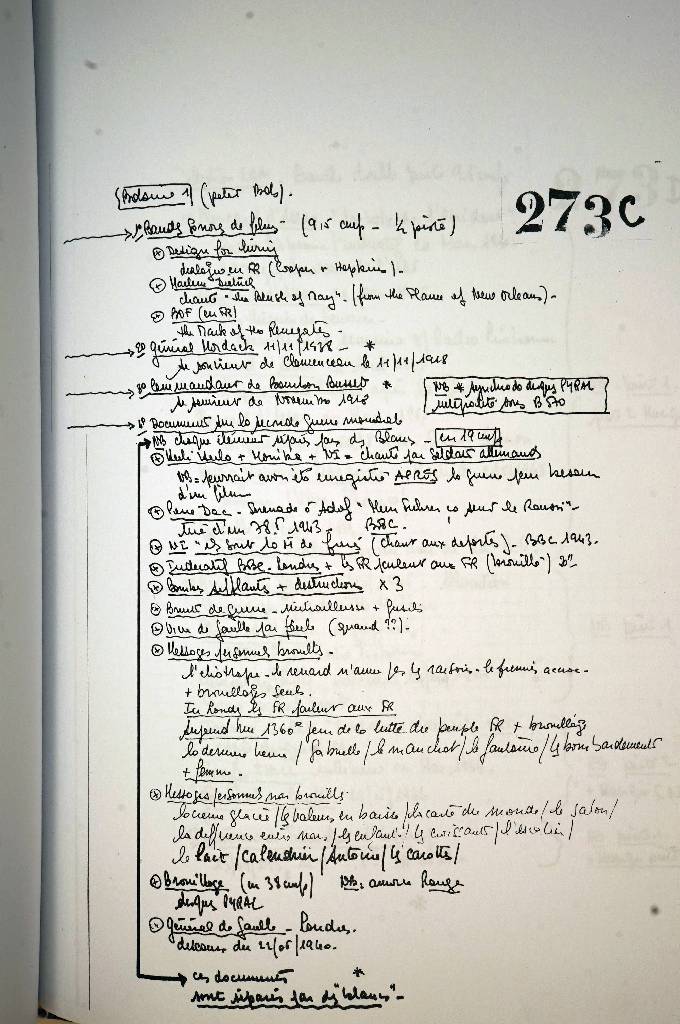 (Peter Bob).
273C
1º Bandes sonores de films - (9,5 cm/s - ½ piste)
⊛ Design for living
dialogue en FR (Cooper + Hopkins).
⊛ Marlene Dietrich
chante "the Blush of May". (from the Flame of New Orleans).
⊛ BOF (en FR)
the Mark of the Renegate -
2º Général Mordacq 11/11/1938 *
se souvient de Clemenceau le 11/11/1918
3º Commandant de Bourbon Busset *
se souvient de Novembre 1918
NB * synchro de disques PYRAL
4º Document sur la seconde guerre mondiale
NB chaque élément séparé par des Blancs - en 19 cm/s
⊛ + Monika + NI = chantés par Soldats allemands
NB = pourrait avoir été enregistré APRÈS la guerre pour besoin
d'un film
⊛ Pierre Dac - Serenade à Adolf
Tiré d'un 78t 1943. BBC.
⊛ NI (chant aux deportes) - BBC 1943.
⊛ Indicatif BBC - Londres + les FR parlent aux FR (brouillé)
⊛ Bombes sifflants + destructions x 3
⊛ Bruit de guerre - mitrailleuse + fusils
⊛ de Gaulle par foule (quand ??).
⊛ Messages personnels brouillés.
l'heliotrope - le renard n'aime pas les raisins -
+ brouillages seuls.
Ici Londres les FR parlent aux FR
Aujourd'hui 1360e jour de la lutte du peuple FR + brouillage
la dernière heure / Gabrielle / le manchot / le fantôme / les bombardements
+ femme.
⊛ Messages personnels non brouillés.
la creme glacée / les valeurs en baisse / la carte du monde / le salon /
la différence entre nous / les enfants / les croissants / l'escalier /
le lait / calendrier / Antoine / les carottes /
⊛ Brouillage (en 38 cm/s) NB: amorce Rouge
disques PYRAL
⊛ général de Gaulle - Londres.
discours du 22/06/1940.
ces documents *
sont séparés par des "blancs" -